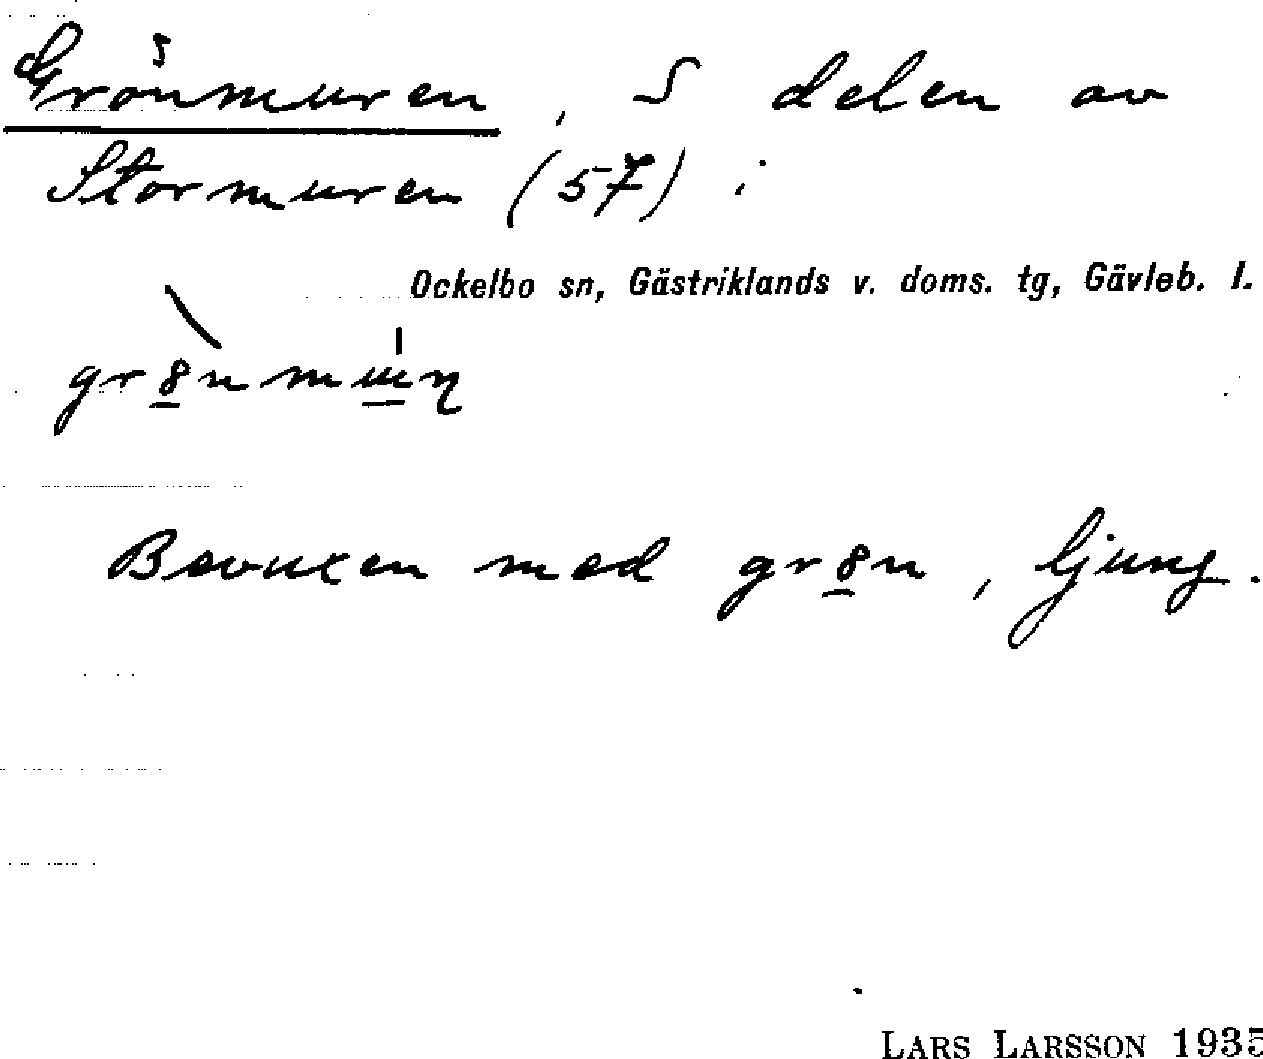 Grönmuren, S delen av
Stormuren (57) i
Ockelbo sn, Gästriklands v. doms. tg, Gävleb. l.
Bevuxen med gr8n, ljung.
LARS LARSSON 1935